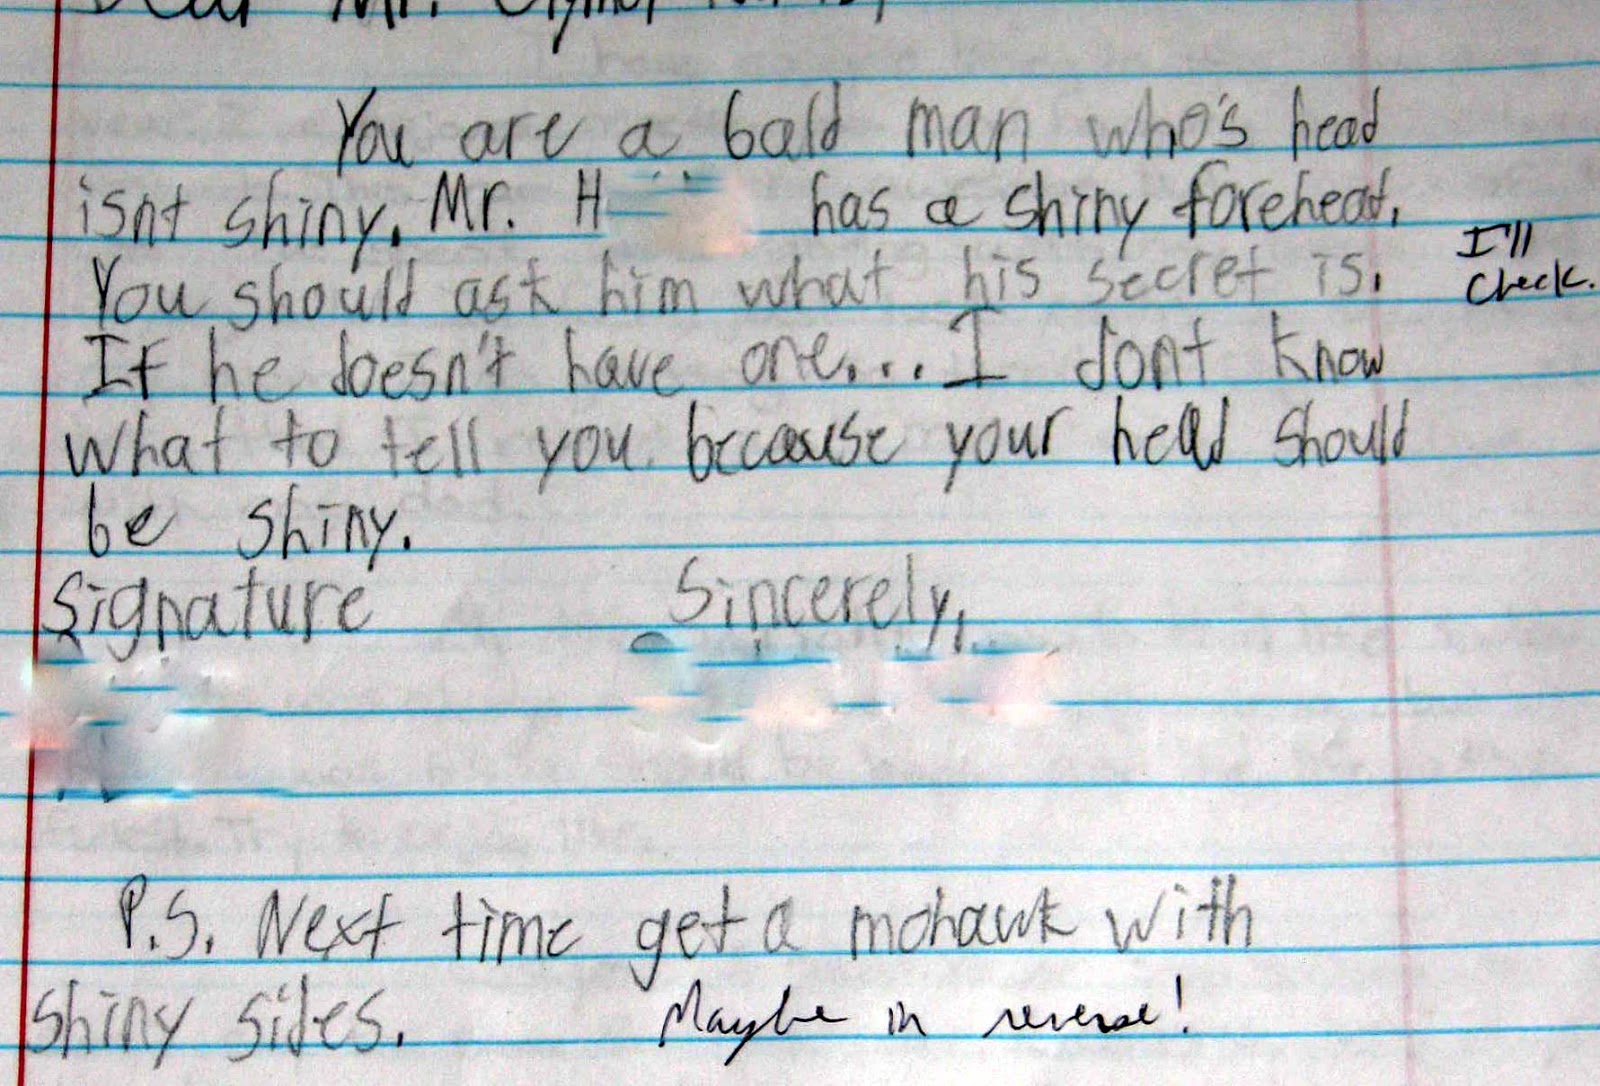 Dear Mr.
You are a bald man who's head
isnt shiny. Mr. H has a shiny forehead.
You should ask him what his secret is.
I'll
check.
If he doesn't have one... I dont know
what to tell you because your head should
be shiny.
Signature Sincerely,
P.S. Next time get a mohawk with
shiny sides. Maybe in reverse!